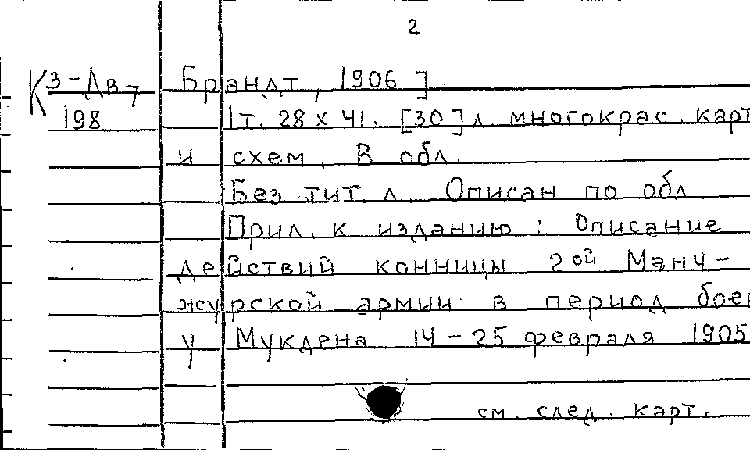 2
К 3-Дв 7 Брандт, 1906]
198 1т. 28 х 41. [30] л. многокрас. карт
и схем. В обл.
Без тит. л. Описан по обл
Прил. к изданию: Описание
действий конницы 2ой Манч-
журской армии в период боев
у Мукдена 14-25 февраля 1905
см. след. карт.